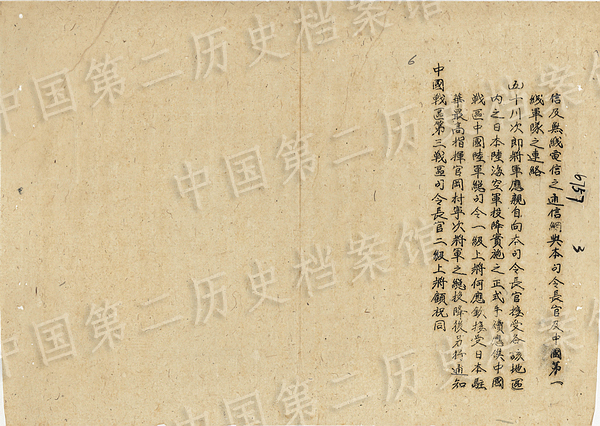 信及無线電信之通信網與本司令長官及中國第一
线軍隊之連略
五十川次郎將軍應親自向本司令長官接受各該地區
内之日本陸海空軍投降實施之正式手續應俟中國
戰區中國陸軍總司令一級上將何應欽接受日本駐
華最高指揮官岡村寧次將軍之總投降後另行通知
中國戰區第三戰區司令長官二級上將顧祝同
6
3
中国第二历史档案馆